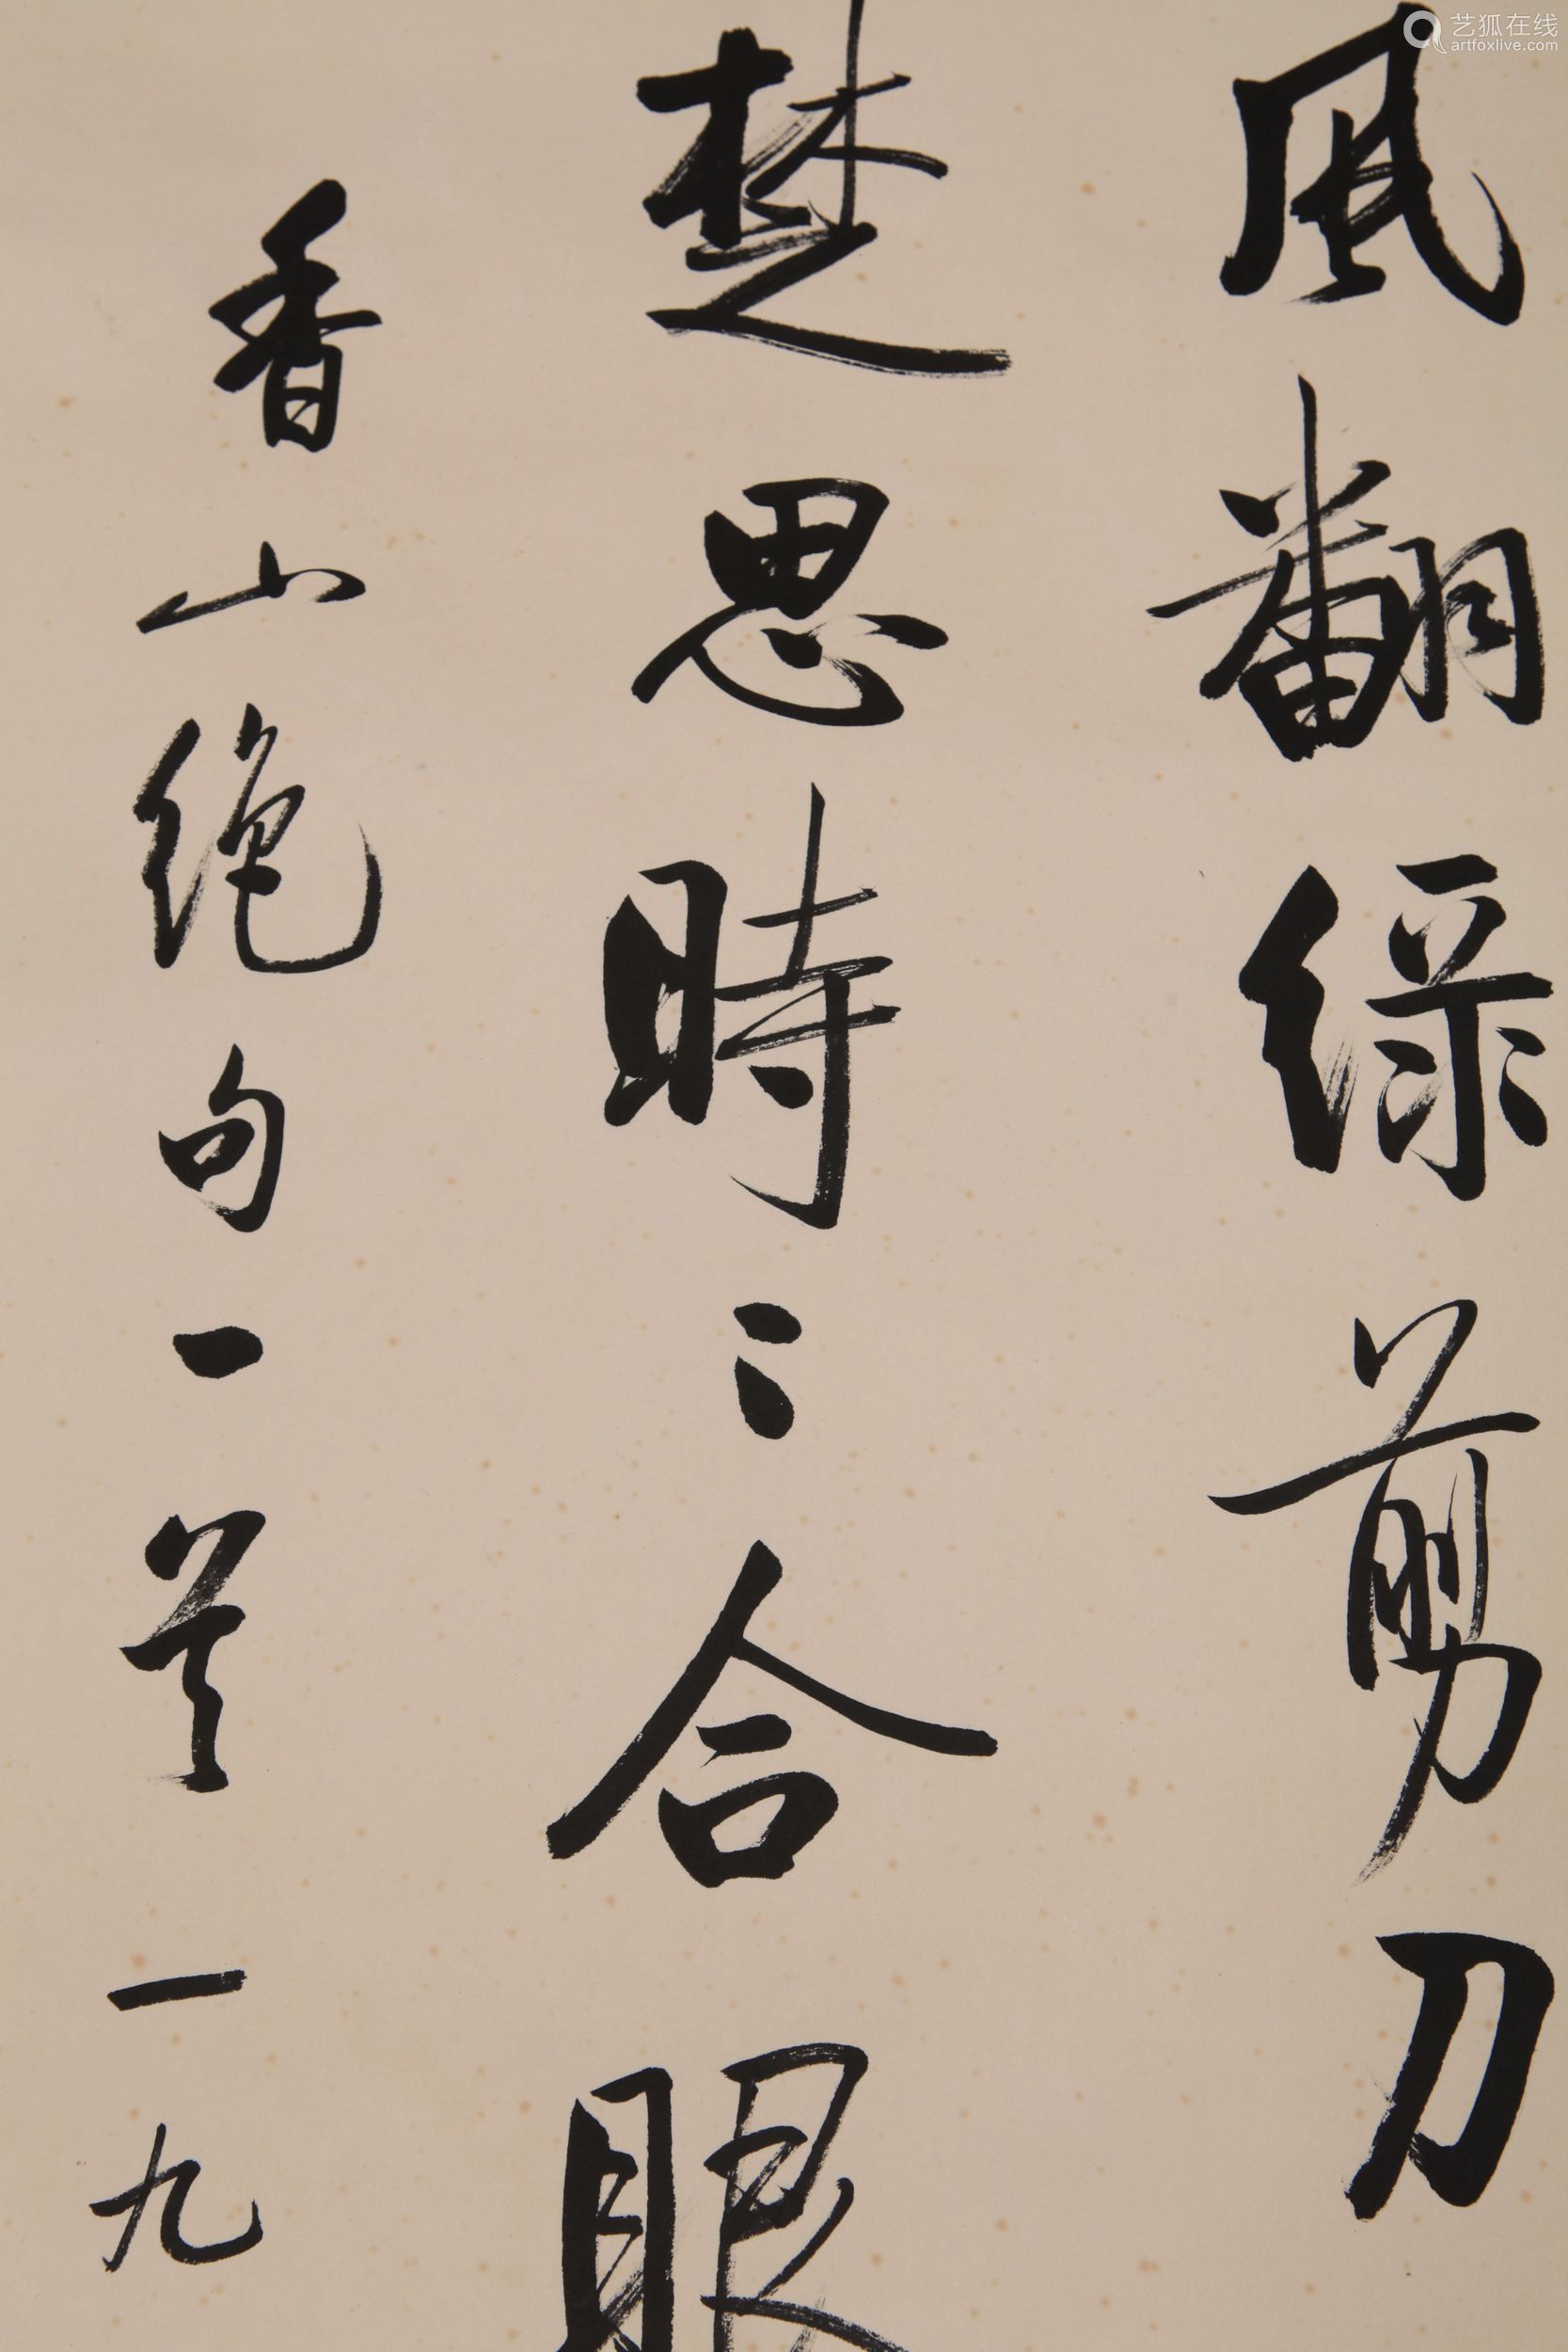 風翻綠剪刀
楚思時〻合眼
香山絕句一首 一九
艺狐在线
artfoxlive.com